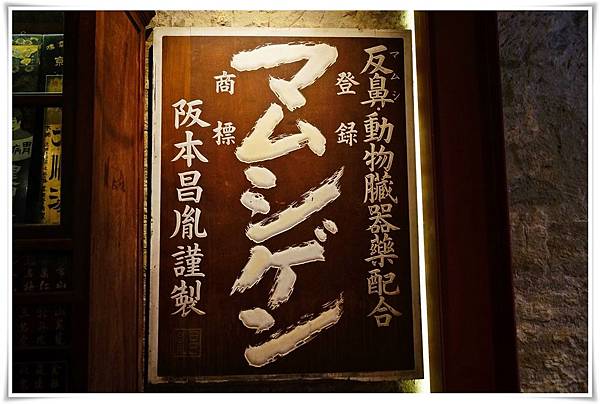 反鼻動物臓器薬配合
マムシ
登録
商標
マムシゲン
阪本昌胤謹製